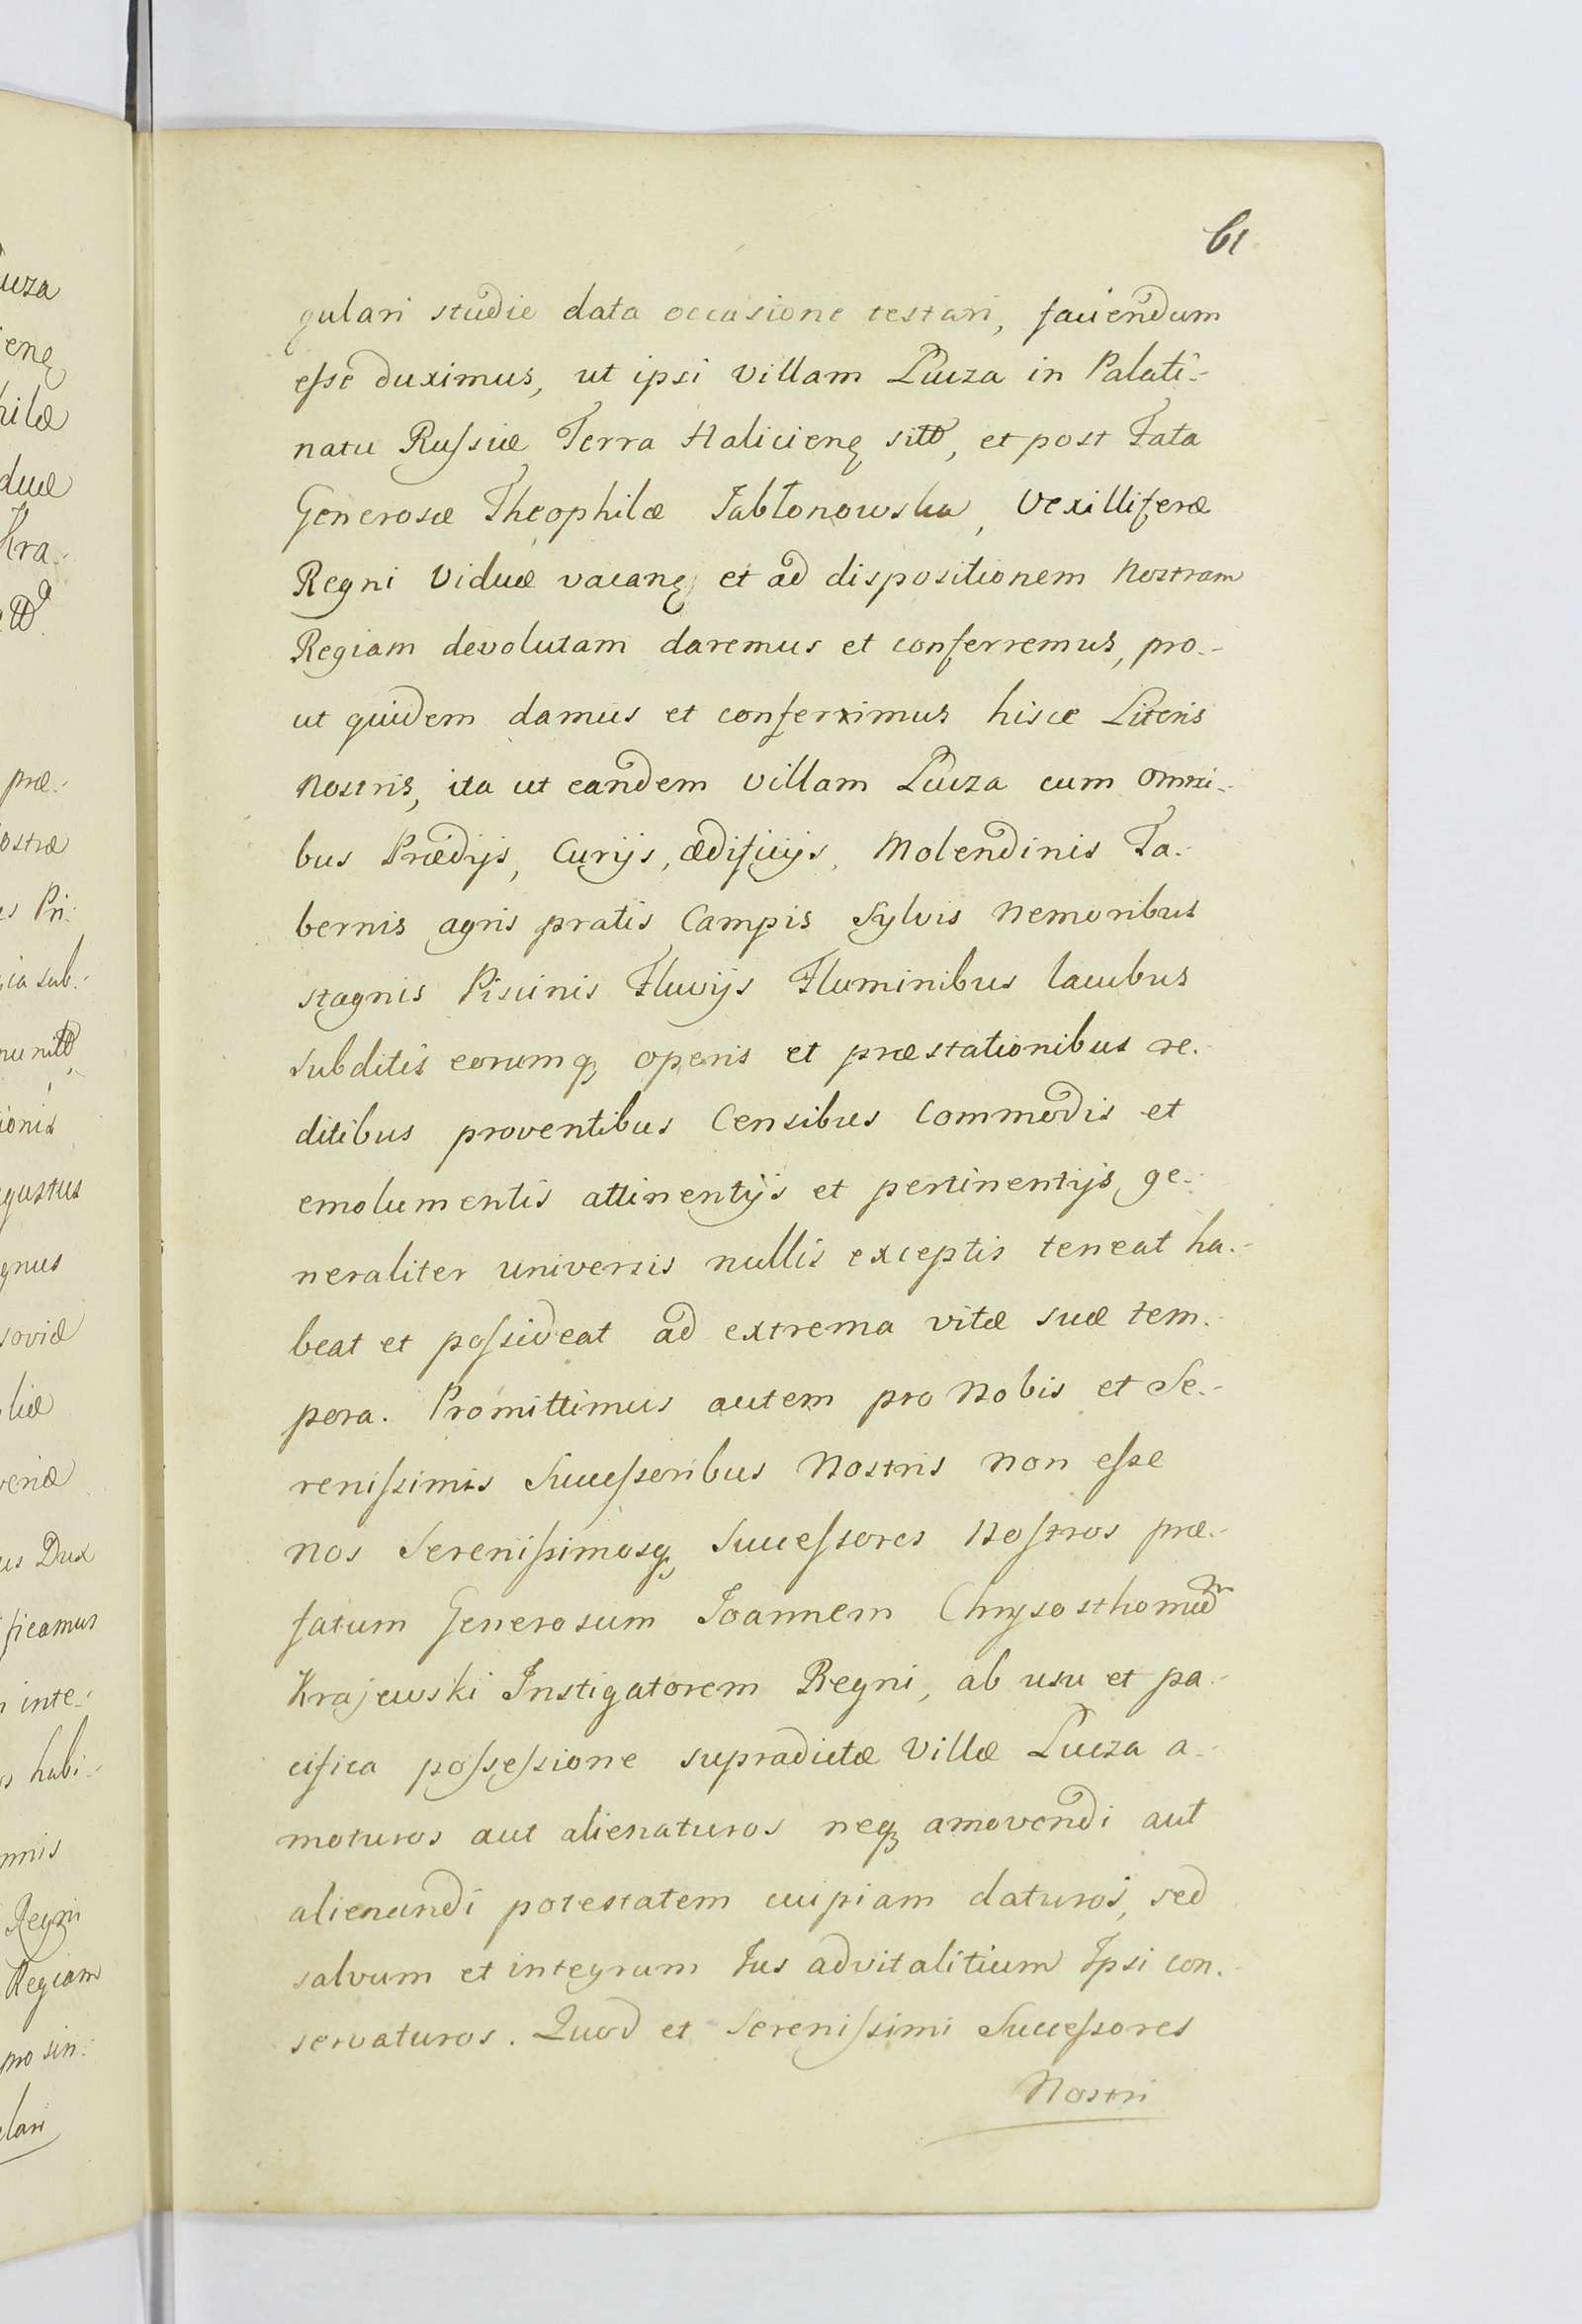 61
gulari studie data occasione testari, faciendum
esse duximus, ut ipsi villam Łucza in Palati-
natu Russiæ Terra Haliciens sittã, et post Fata
Generosæ Theophilæ Jabłonowska, Vexilliferæ
Regni Viduæ vacanę et ad dispositionem Nostram
Regiam devolutam daremus et conferremus, pro-
ut quidem damus et conferimus hisce Literis
Nostris, ita ut eandem villam Łucza cum omni-
bus Prædijs, Curijs, ædificijs, Molendinis Ta-
bernis agris pratis Campis Sylvis Nemoribus
stagnis Piscinis Fluvijs Fluminibus lacubus
subditis eorumq, operis et præstationibus re-
ditibus proventibus Censibus Commodis et
emolumentis attinentijs et pertinentijs, ge-
neraliter universis nullis exceptis teneat ha-
beat et possideat ad extrema vitæ suæ tem-
pora. Promittimus autem pro Nobis et Se-
renissimis Successoribus Nostris non esse
nos Serenissimosq, Successores Nostros præ-
fatum Generosum Joannem Chrysosthomum
Krajewski Instigatorem Regni, ab usu et pa-
cifica possessione supradictæ Villæ Łucza a-
moturos aut alienaturos neq, amovendi aut
alienandi potestatem cuipiam daturos, sed
salvum et integrum Jus advitalitium Ipsi con-
servaturos. Quod et Serenissimi Successores
Nostri